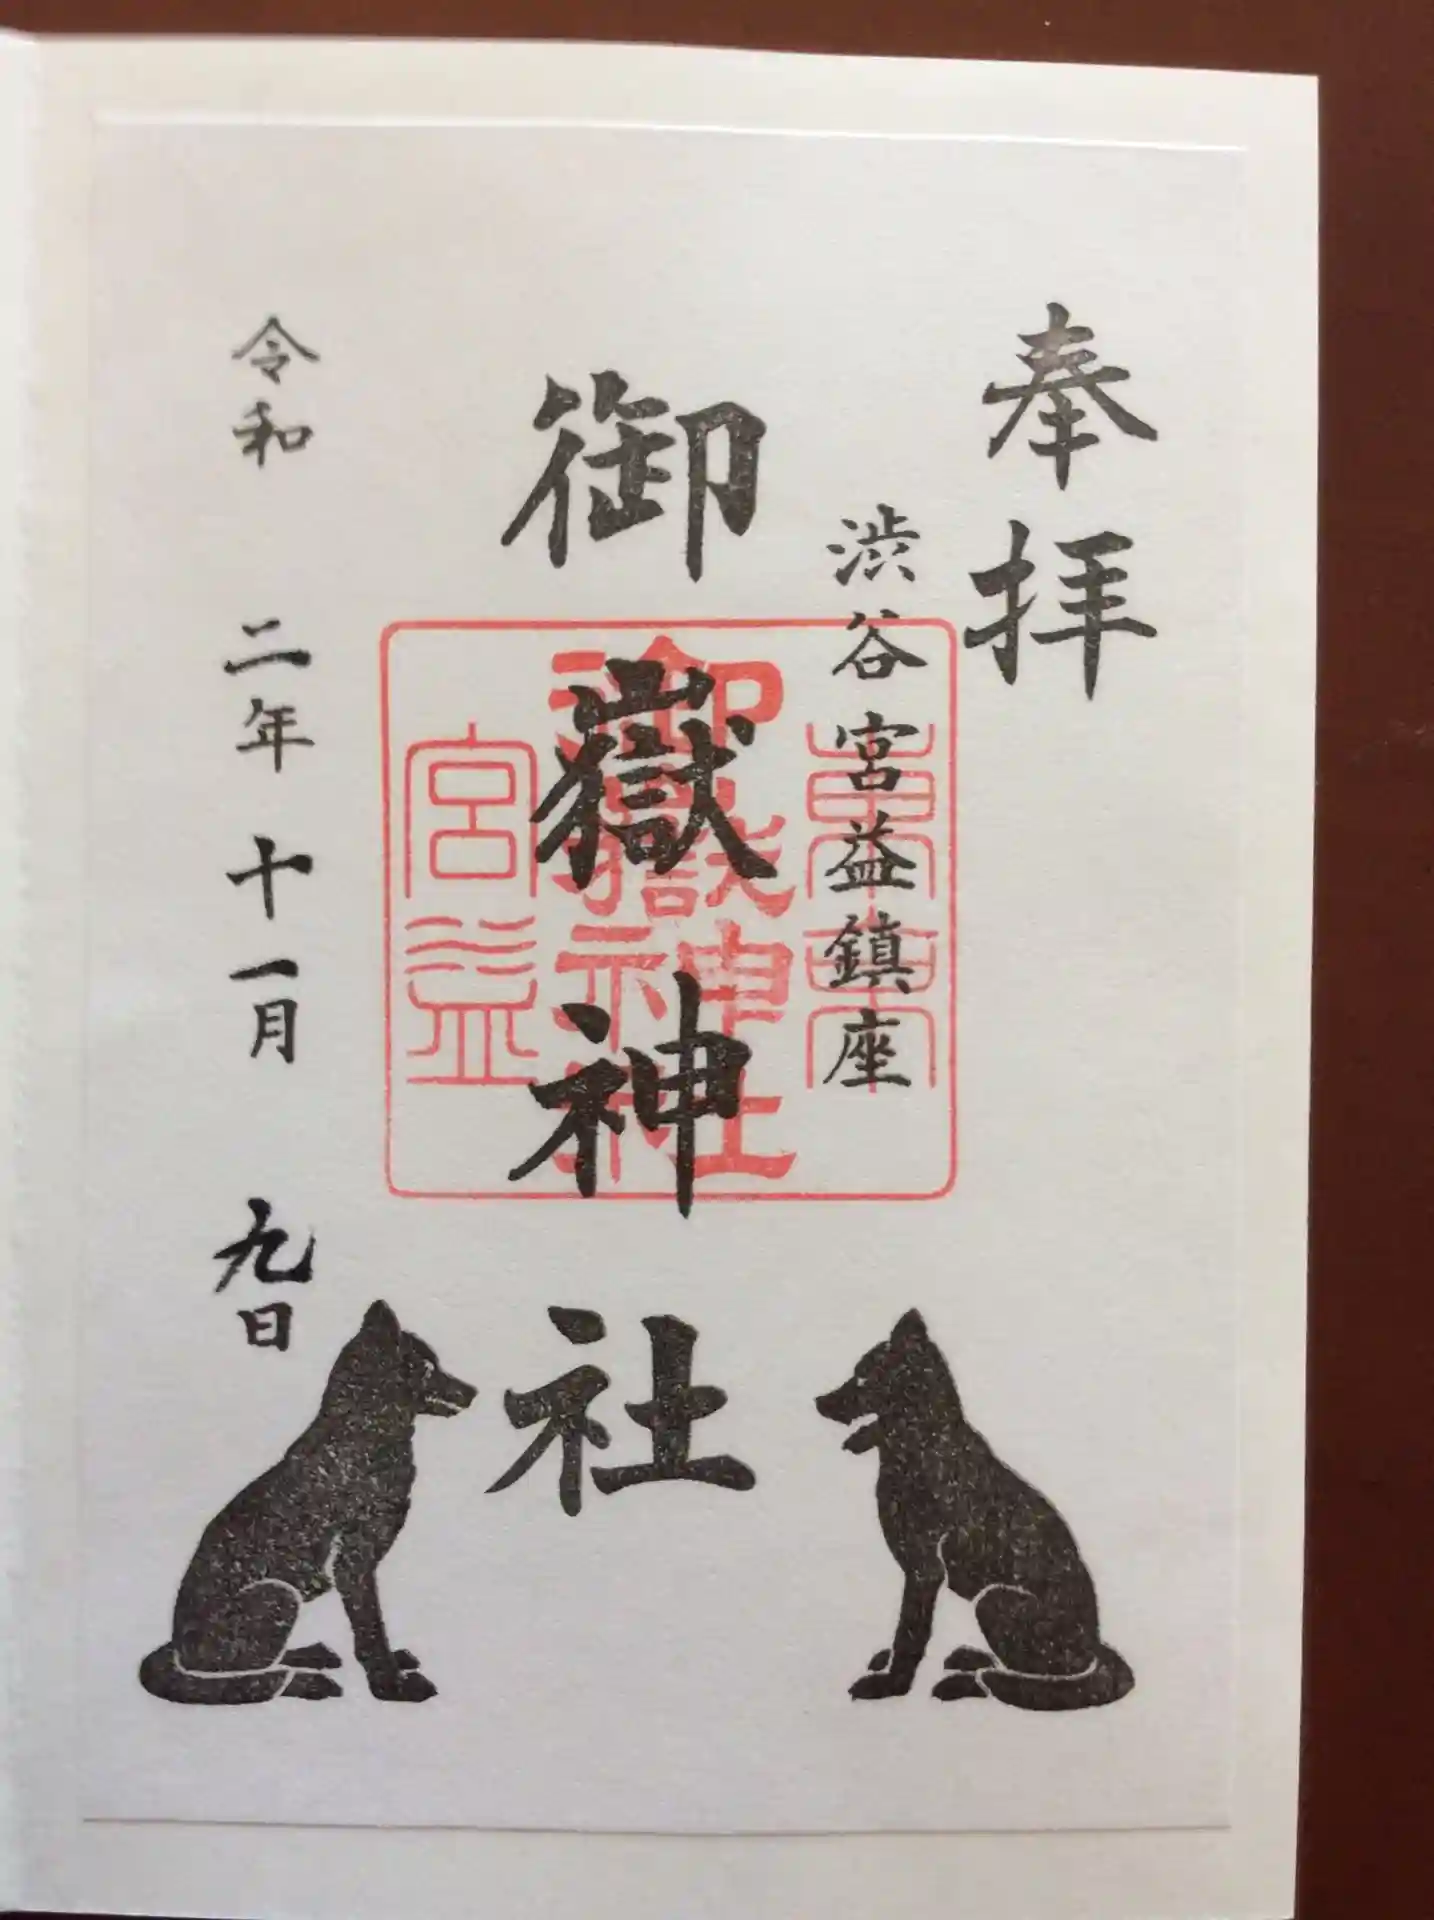 奉拝
渋谷宮益鎮座
御嶽神社
令和 二年 十一月 九日
東京
御嶽神社
宮益